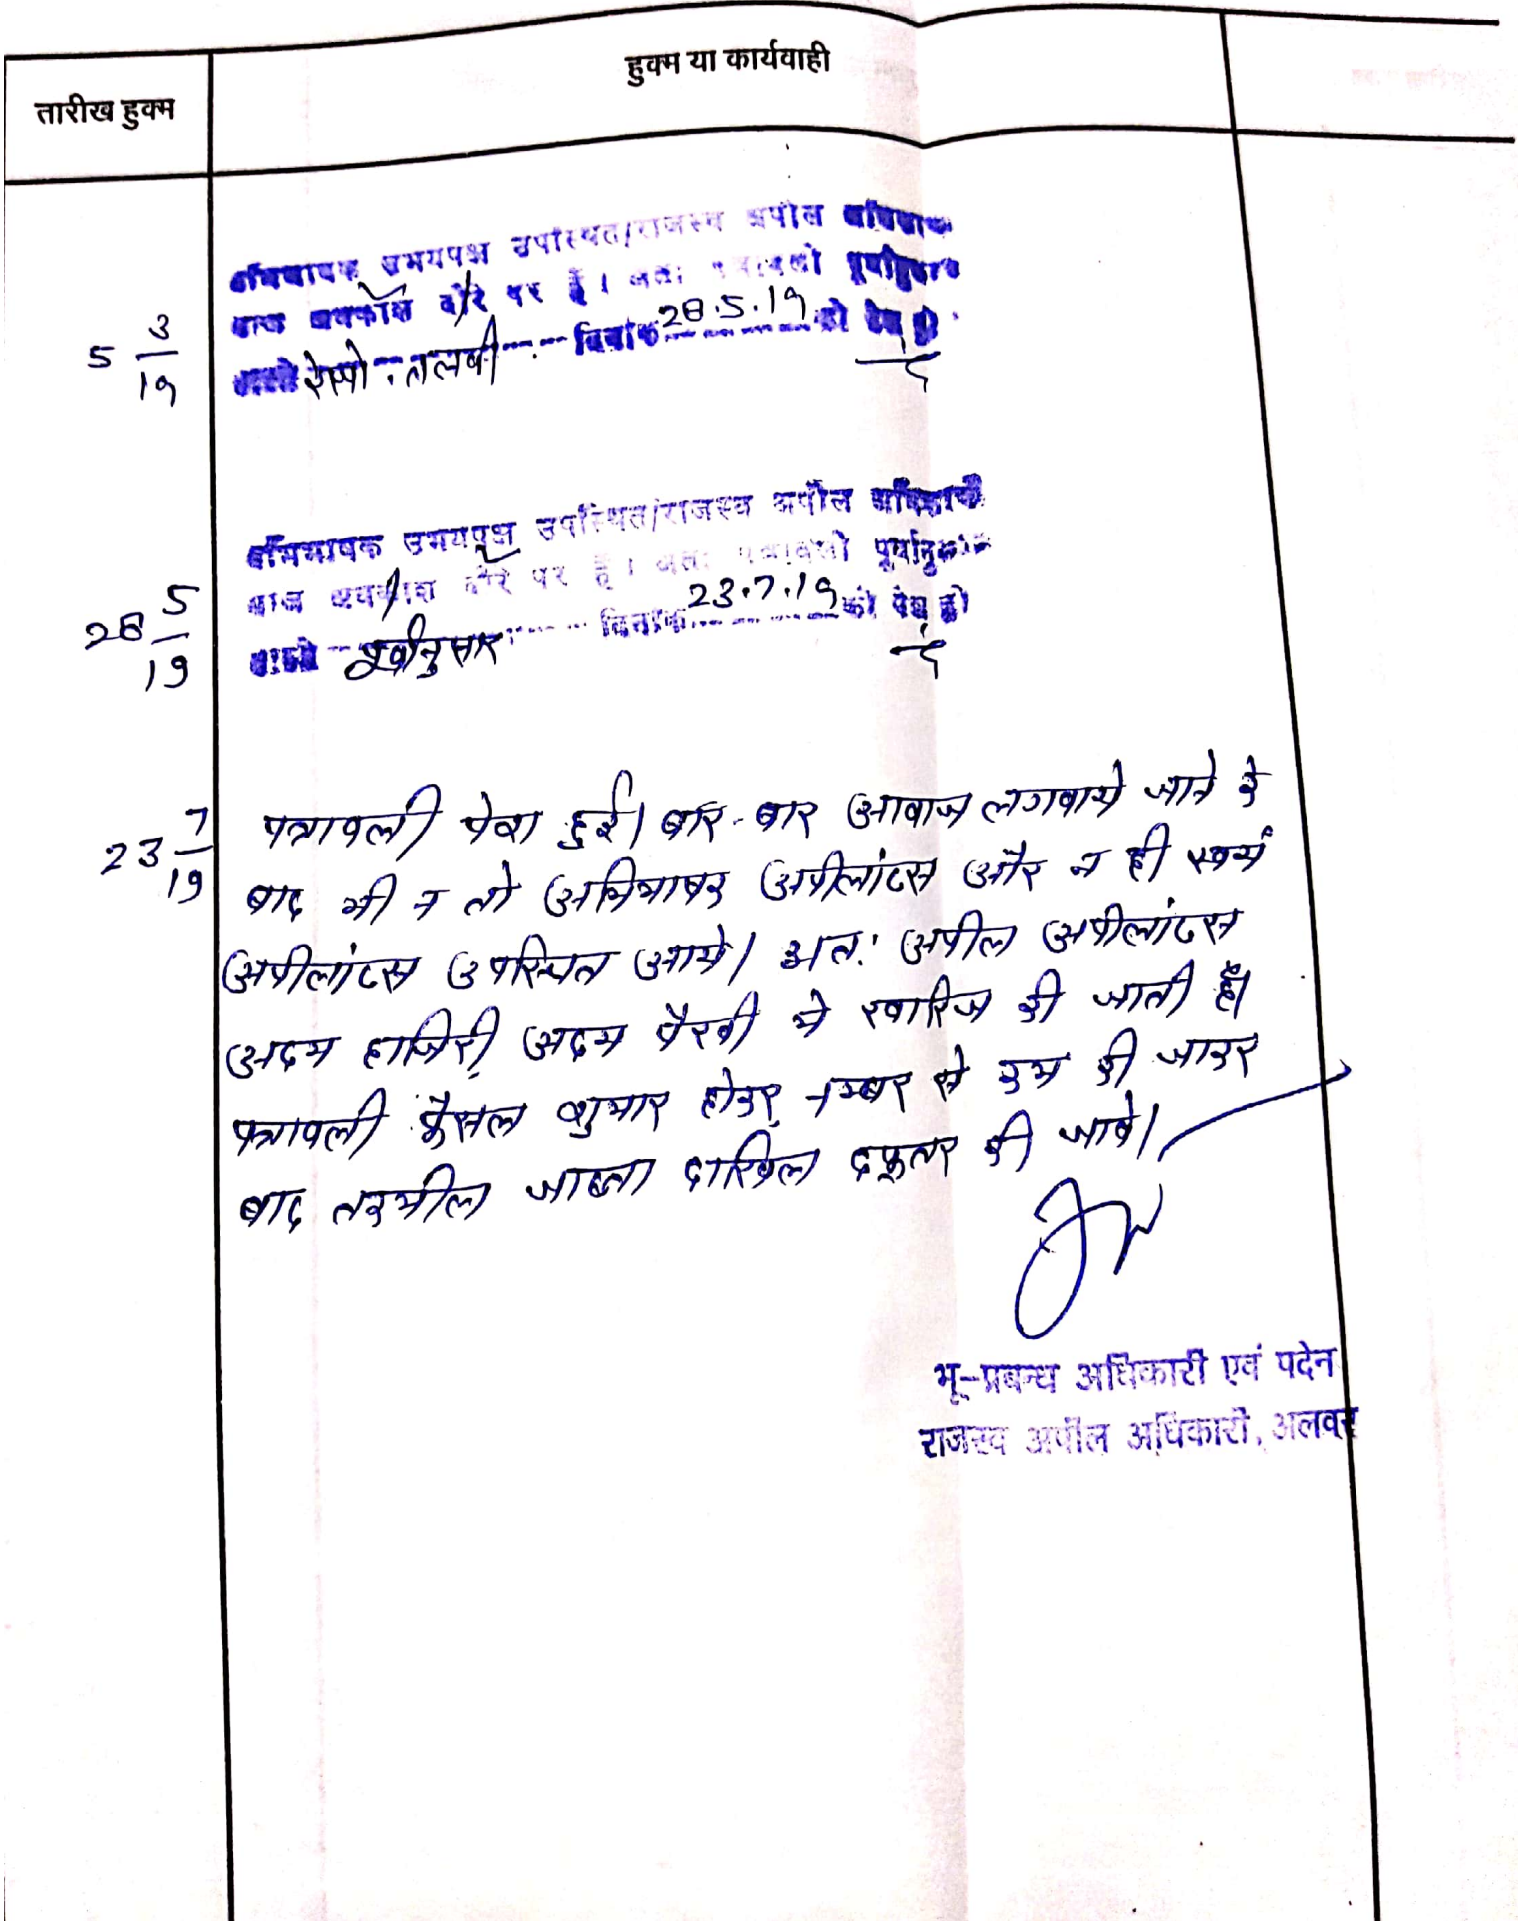 हुक्म या कार्यवाही
तारीख हुक्म
अभिभाषक उभयपक्ष उपस्थित/राजस्व अपील
आज अवकाश दौरे पर हैं। अतः पत्रावली पूर्वानुसार
5 3/19
वास्ते रेस्पो. तलबी दिनांक 28.5.19 को पेश हो
अभिभाषक उभयपक्ष उपस्थित/राजस्व अपील अधिकारी
आज अवकाश दौरे पर हैं। अतः पत्रावली पूर्वानुसार
28 5/19
वास्ते पूर्वानुसार दिनांक 23.7.19 को पेश हो
23 7/19
पत्रावली पेश हुई। बार-बार आवाज लगवाये जाने के
बाद भी न तो अभिभाषक अपीलांटस और न ही स्वयं
अपीलांटस उपस्थित आये। अतः अपील अपीलांटस
अदम हाजिरी, अदम पैरवी मे खारिज की जाती है।
पत्रावली फैसल शुमार होकर नम्बर से कम की जाकर
बाद तकमील जाब्ता दाखिल दफ्तर की जावे।
भू-प्रबन्ध अधिकारी एवं पदेन
राजस्व अपील अधिकारी, अलवर